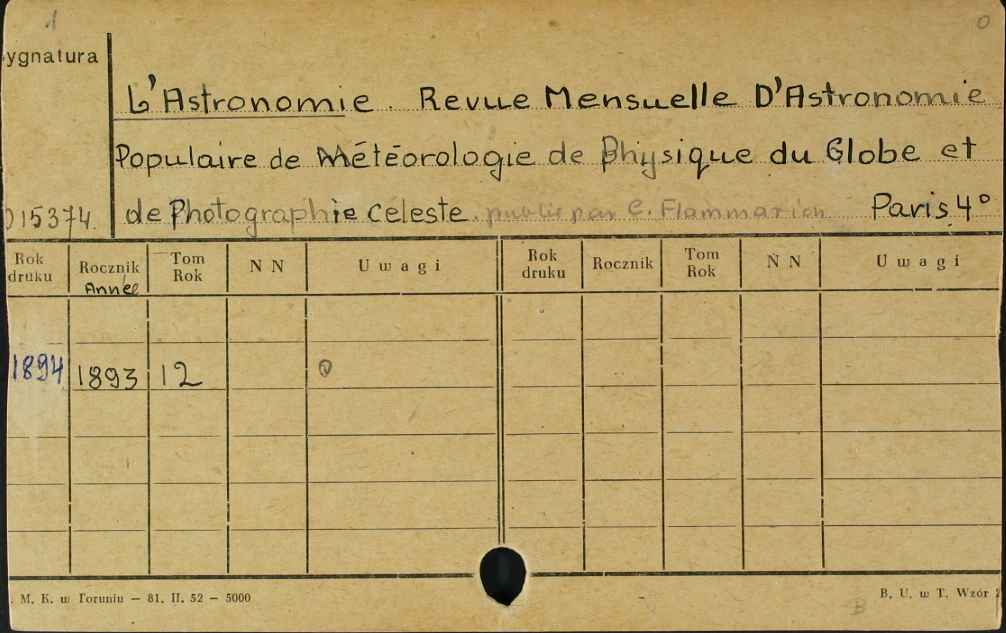 1 0
ygnatura
L'Astronomie. Revue Mensuelle D'Astronomie
Populaire de Météorologie de Physique du Globe et
015374. de Photographie Céleste. publié par C. Flammarion Paris 4°
Rok druku Rocznik Année Tom Rok N N Uwagi Rok druku Rocznik Tom Rok N N Uwagi
1894 1893 12 0
. M. K. w Toruniu — 81. II. 52 — 5000 B B. U. w T. Wzór